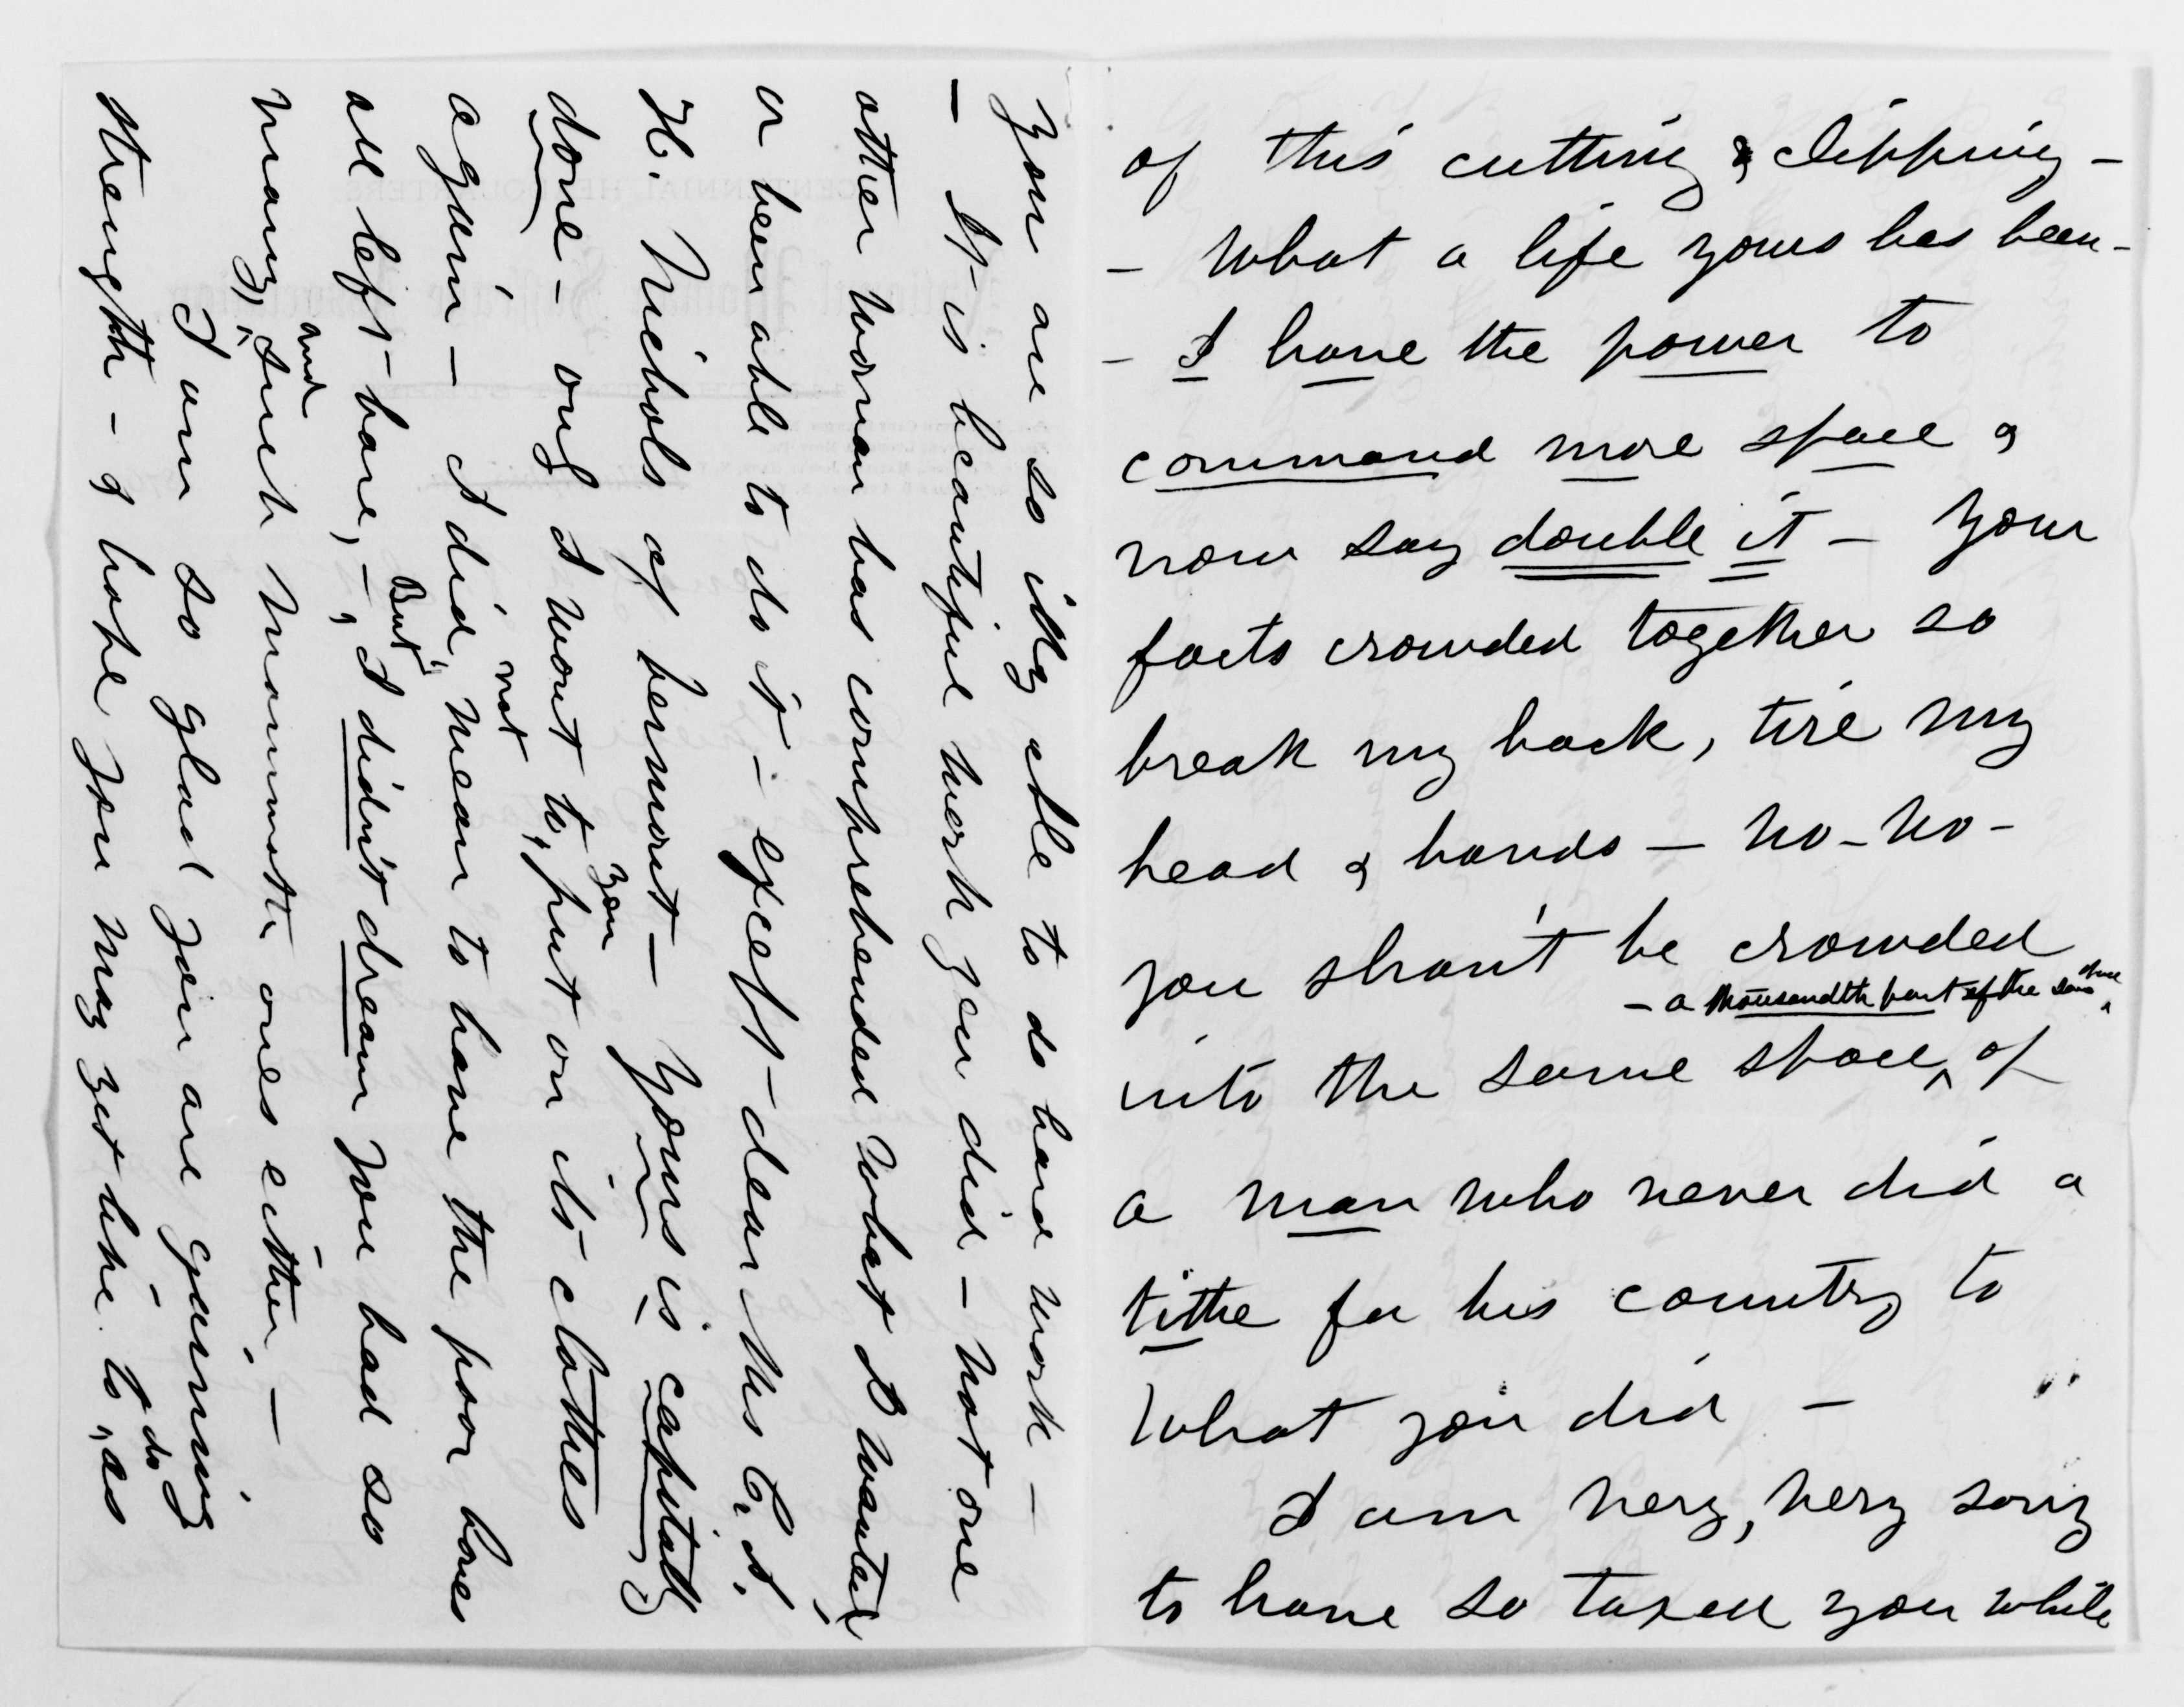 of this cutting & clipping –
– What a life yours has been –
– I have the power to
command more space &
now say double it – Your
facts crowded together so
break my back, tire my
head & hands – no – no –
you shan't be crowded
– a thousandth part of the same space
into the same space, of
a man who never did a
tithe for his country to
what you did –
I am very, very sorry
to have so taxed you while
you are so illy able to do hard work –
– It is beautiful work you did – not one
other woman has comprehended what I wanted
or been able to do it – except – dear Mrs C. I.
H. Nichols of Vermont – Yours is capitally
done – only I want to, put on its clothes
you
again – I did, mean to have the poor bones
not
all left bare, – , I didn't dream you had so
But
many, such mammoth ones either –
and
I am so glad you are gaining
strength – & hope you may yet live to, as
do